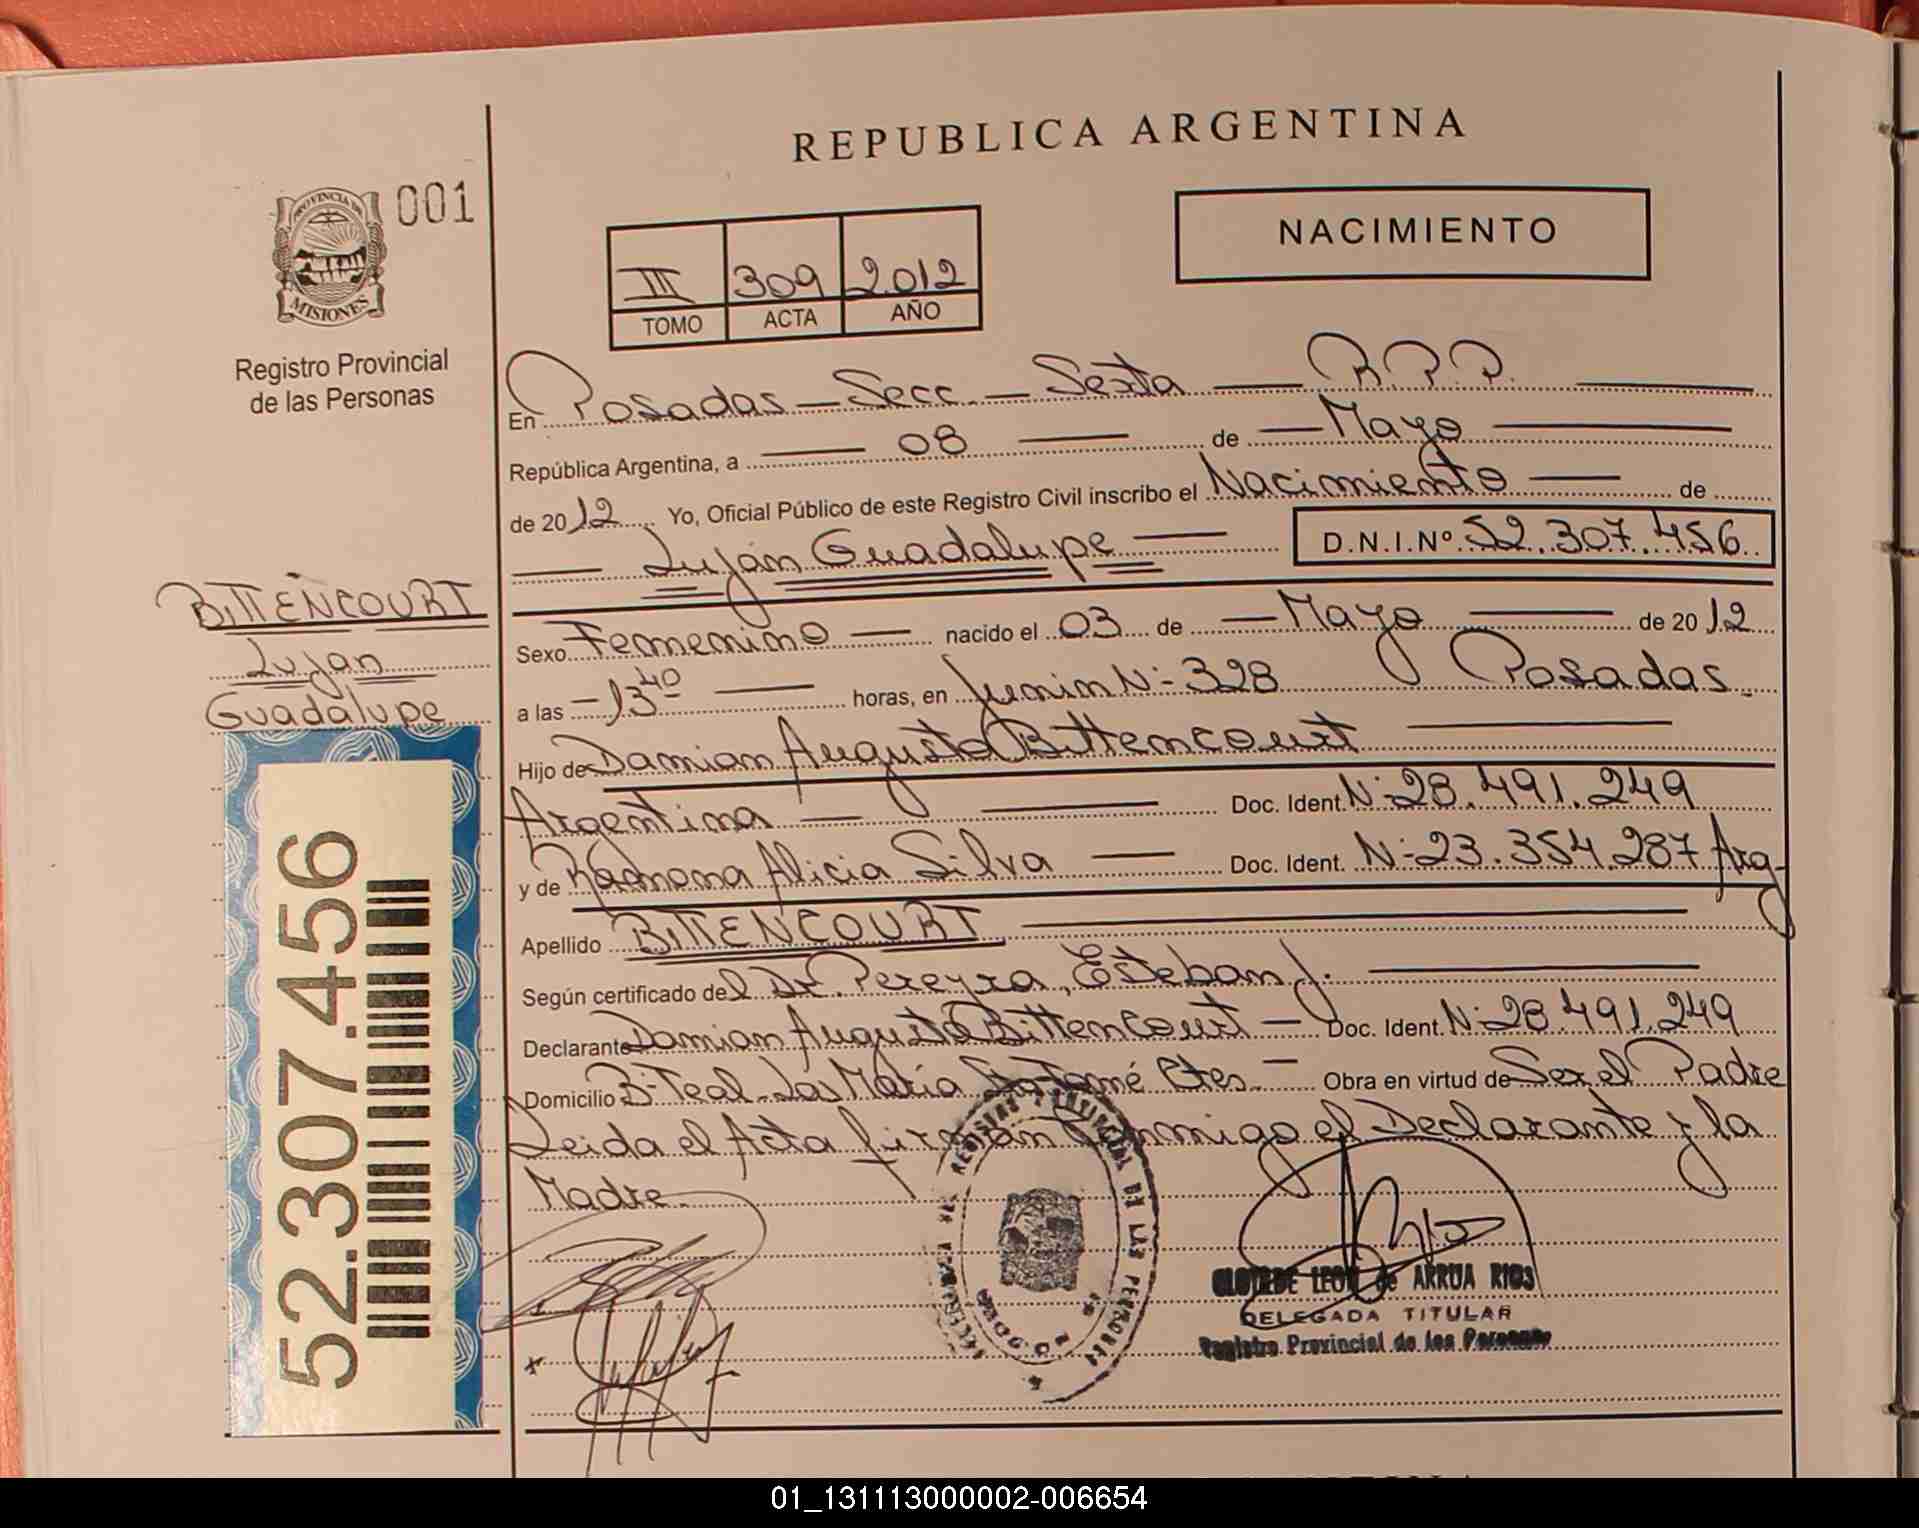 REPUBLICA ARGENTINA
PROVINCIA DE
MISIONES
001
Registro Provincial
de las Personas
III 309 2012
TOMO ACTA AÑO
NACIMIENTO
En Posadas - Secc. - Sexta — R.P.P. —
República Argentina, a — 08 — de — Mayo —
de 2012 Yo, Oficial Público de este Registro Civil inscribo el Nacimiento — de
— Luján Guadalupe — D.N.I.Nº 52.307.456
BITTENCOURT
Lujan
Guadalupe
52.307.456
Sexo Femenino — nacido el 03 de — Mayo — de 2012
a las - 13 40 — horas, en Junin Nº 328 Posadas.
Hijo de Damian Augusto Bittencourt —
Argentina — — Doc. Ident. Nº 28.491.249
y de Ramona Alicia Silva — Doc. Ident. Nº 23.354.287 Arg.
Apellido BITTENCOURT —
Según certificado del Dr. Pereyra, Esteban J. —
Declarante Damian Augusto Bittencourt — Doc. Ident. Nº 28.491.249
Domicilio Bº Teal - Las María Sto Tomé Ctes. — Obra en virtud de Ser el Padre
Leida el Acta firman conmigo el Declarante y la
Madre.
REGISTRO PROVINCIAL DE LAS PERSONAS
CLOTILDE LEON de ARRUA RIOS
DELEGADA TITULAR
Registro Provincial de las Personas
01_131113000002-006654